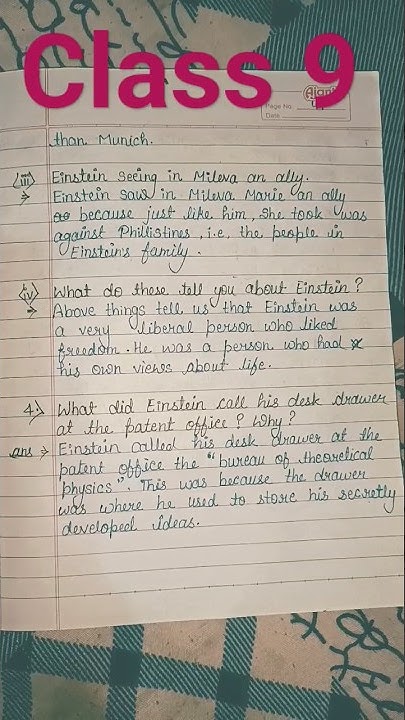 Class 9
Ajanta
Page No.
Date
than Munich.
(iii) Einstein seeing in Mileva an ally.
→ Einstein saw in Mileva Marie an ally
because just like him, she too was
against Phillistines, i.e. the people in
Einstein's family.
(iv) What do these tell you about Einstein?
→ Above things tell us that Einstein was
a very liberal person who liked
freedom. He was a person who had
his own views about life.
4.) What did Einstein call his desk drawer
at the patent office? Why?
ans → Einstein called his desk drawer at the
patent office the "bureau of theoretical
physics". This was because the drawer
was where he used to store his secretly
developed ideas.